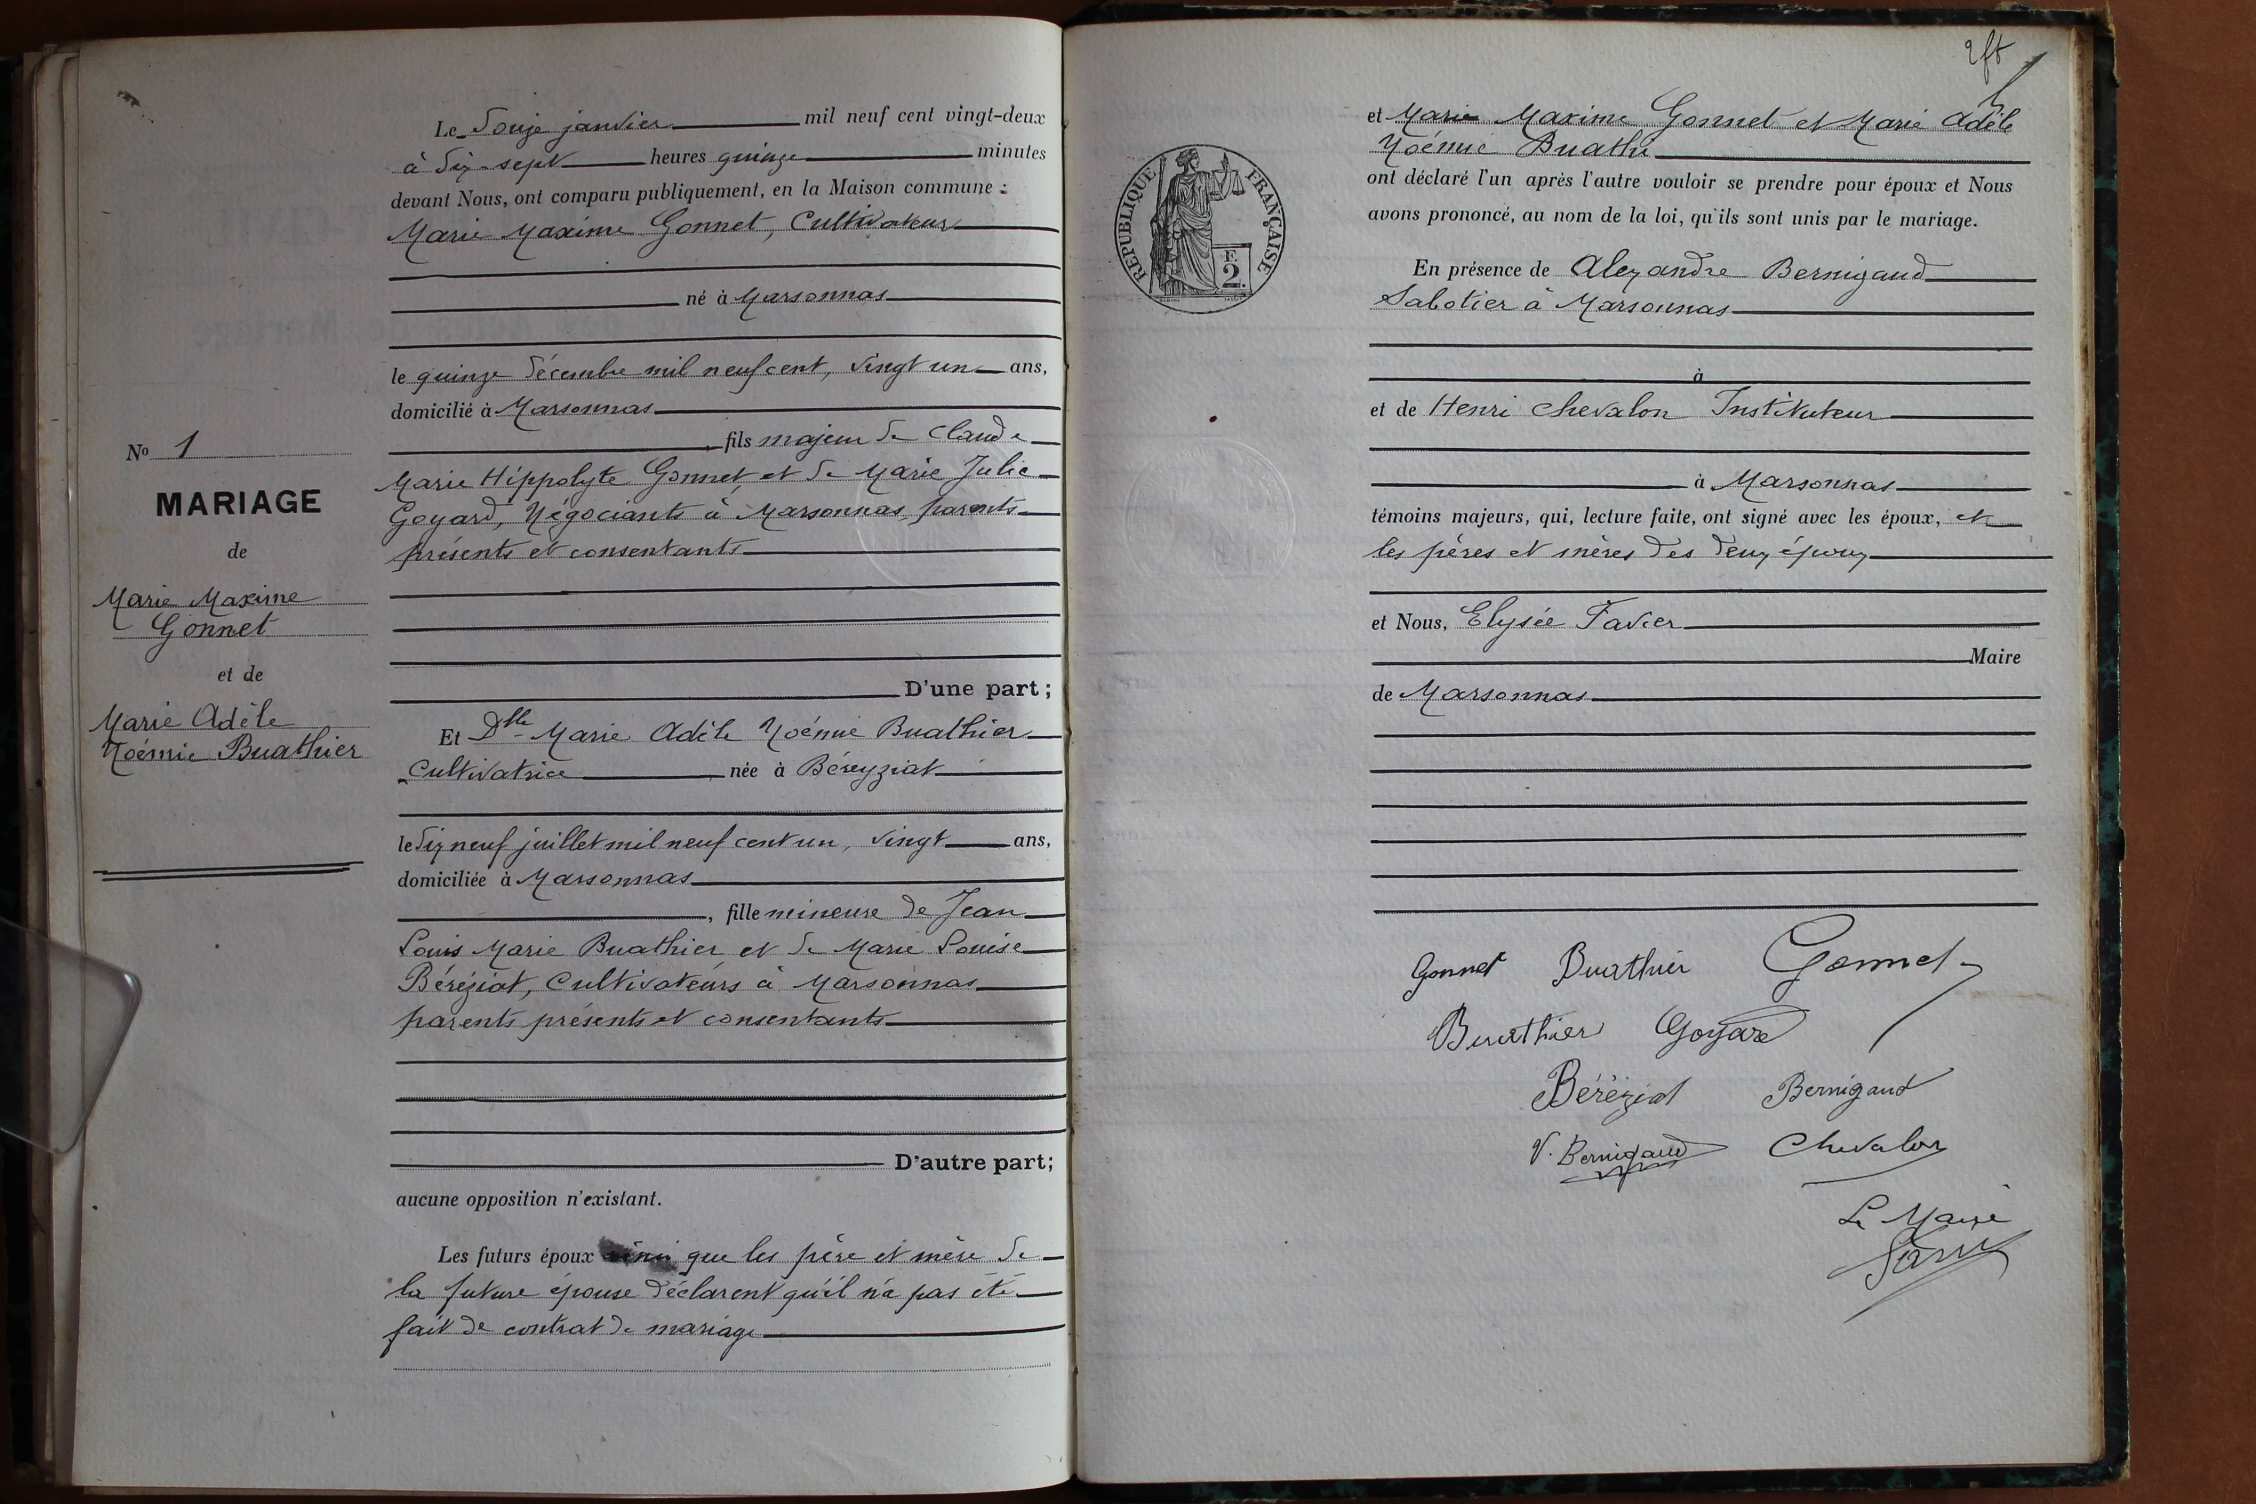 Le douze janvier mil neuf cent vingt-deux
à dix-sept heures quinze minutes
devant Nous, ont comparu publiquement, en la Maison commune :
Marie Maxime Gonnet, Cultivateur
né à Marsonnas
le quinze décembre mil neuf cent, vingt un ans,
domicilié à Marsonnas
, fils majeur de Claude
Marie Hippolyte Gonnet et de Marie Julie
Goyard, Négociants à Marsonnas, parents
présents et consentants
D'une part ;
Et Dlle Marie Adèle Noémie Buathier
Cultivatrice, née à Béreyziat
le dix neuf juillet mil neuf cent un, vingt ans,
domiciliée à Marsonnas
, fille mineure de Jean
Louis Marie Buathier et de Marie Louise
Béréziat, Cultivateurs à Marsonnas
parents présents et consentants
D'autre part;
aucune opposition n'existant.
Les futurs époux ainsi que les père et mère de
la future épouse déclarent qu'il n'a pas été
fait de contrat de mariage
No 1
MARIAGE
de
Marie Maxime
Gonnet
et de
Marie Adèle
Noémie Buathier
et Marie Maxime Gonnet et Marie Adèle
Noémie Buathi
ont déclaré l'un après l'autre vouloir se prendre pour époux et Nous
avons prononcé, au nom de la loi, qu'ils sont unis par le mariage.
RÉPUBLIQUE FRANÇAISE
F.
2.
En présence de Alexandre Bernigaud
Sabotier à Marsonnas
à
et de Henri Chevalon Instituteur
à Marsonnas
témoins majeurs, qui, lecture faite, ont signé avec les époux, et
les pères et mères des deux époux
et Nous, Elysée Favier
Maire
de Marsonnas
Gonnet Buathier Gonnet
Buathier Goyard
Béréziat Bernigaud
V. Bernigaud Chevalon
Le Maire